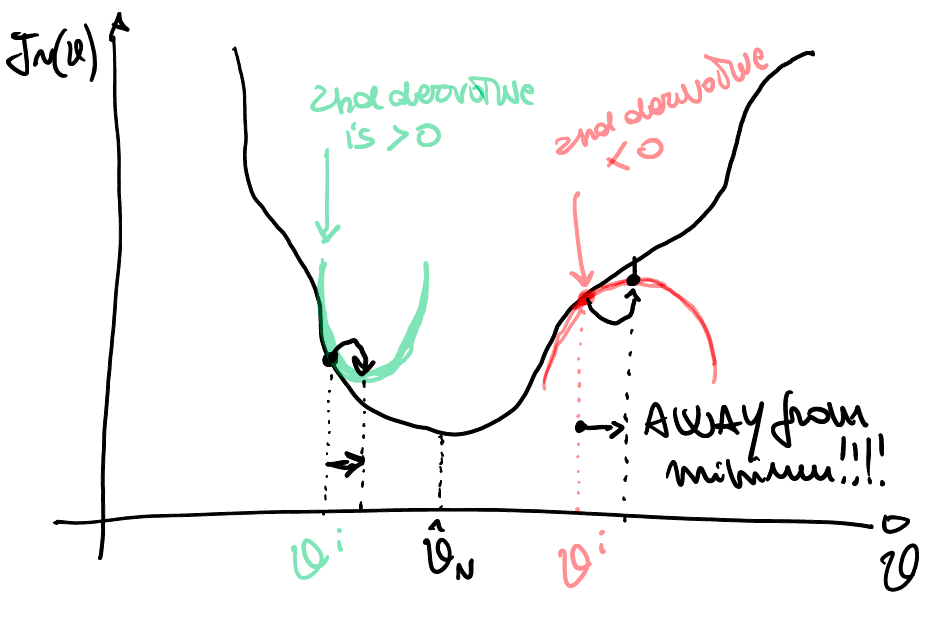 J_N(ϑ)
2nd derivative
is > 0
2nd derivative
< 0
AWAY from
minimum!!!!
ϑ^i
ϑ̂_N
ϑ^i
ϑ